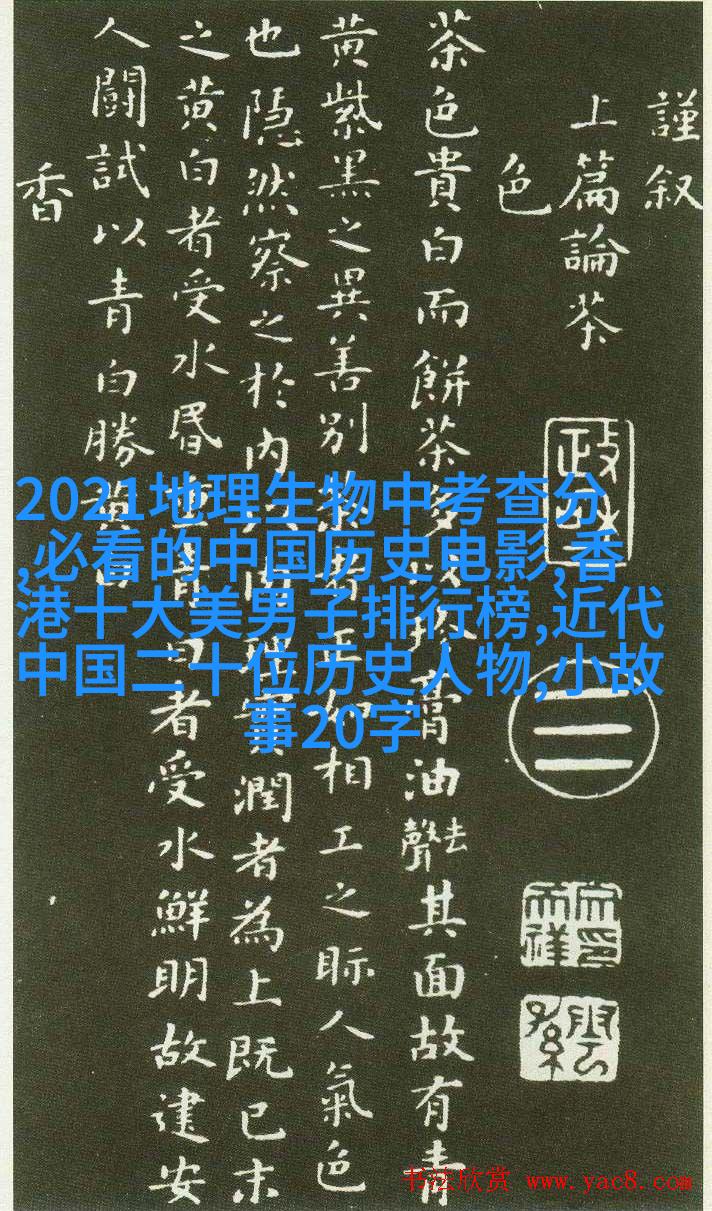 謹叙
上篇論茶
色
茶色貴白而餅茶多以珍膏油去聲其面故有青
黄紫黑之異善别茶者正如相工之眎人氣色
也隐然察之於内以肉理實潤者為上既已末
之黄白者受水昬重青白者受水鮮明故建安
人鬭試以青白勝黄白
香
二
2021地理生物中考查分
,必看的中国历史电影,香
港十大美男子排行榜,近代
中国二十位历史人物,小故
事20字
书法欣赏 www.yac8.com